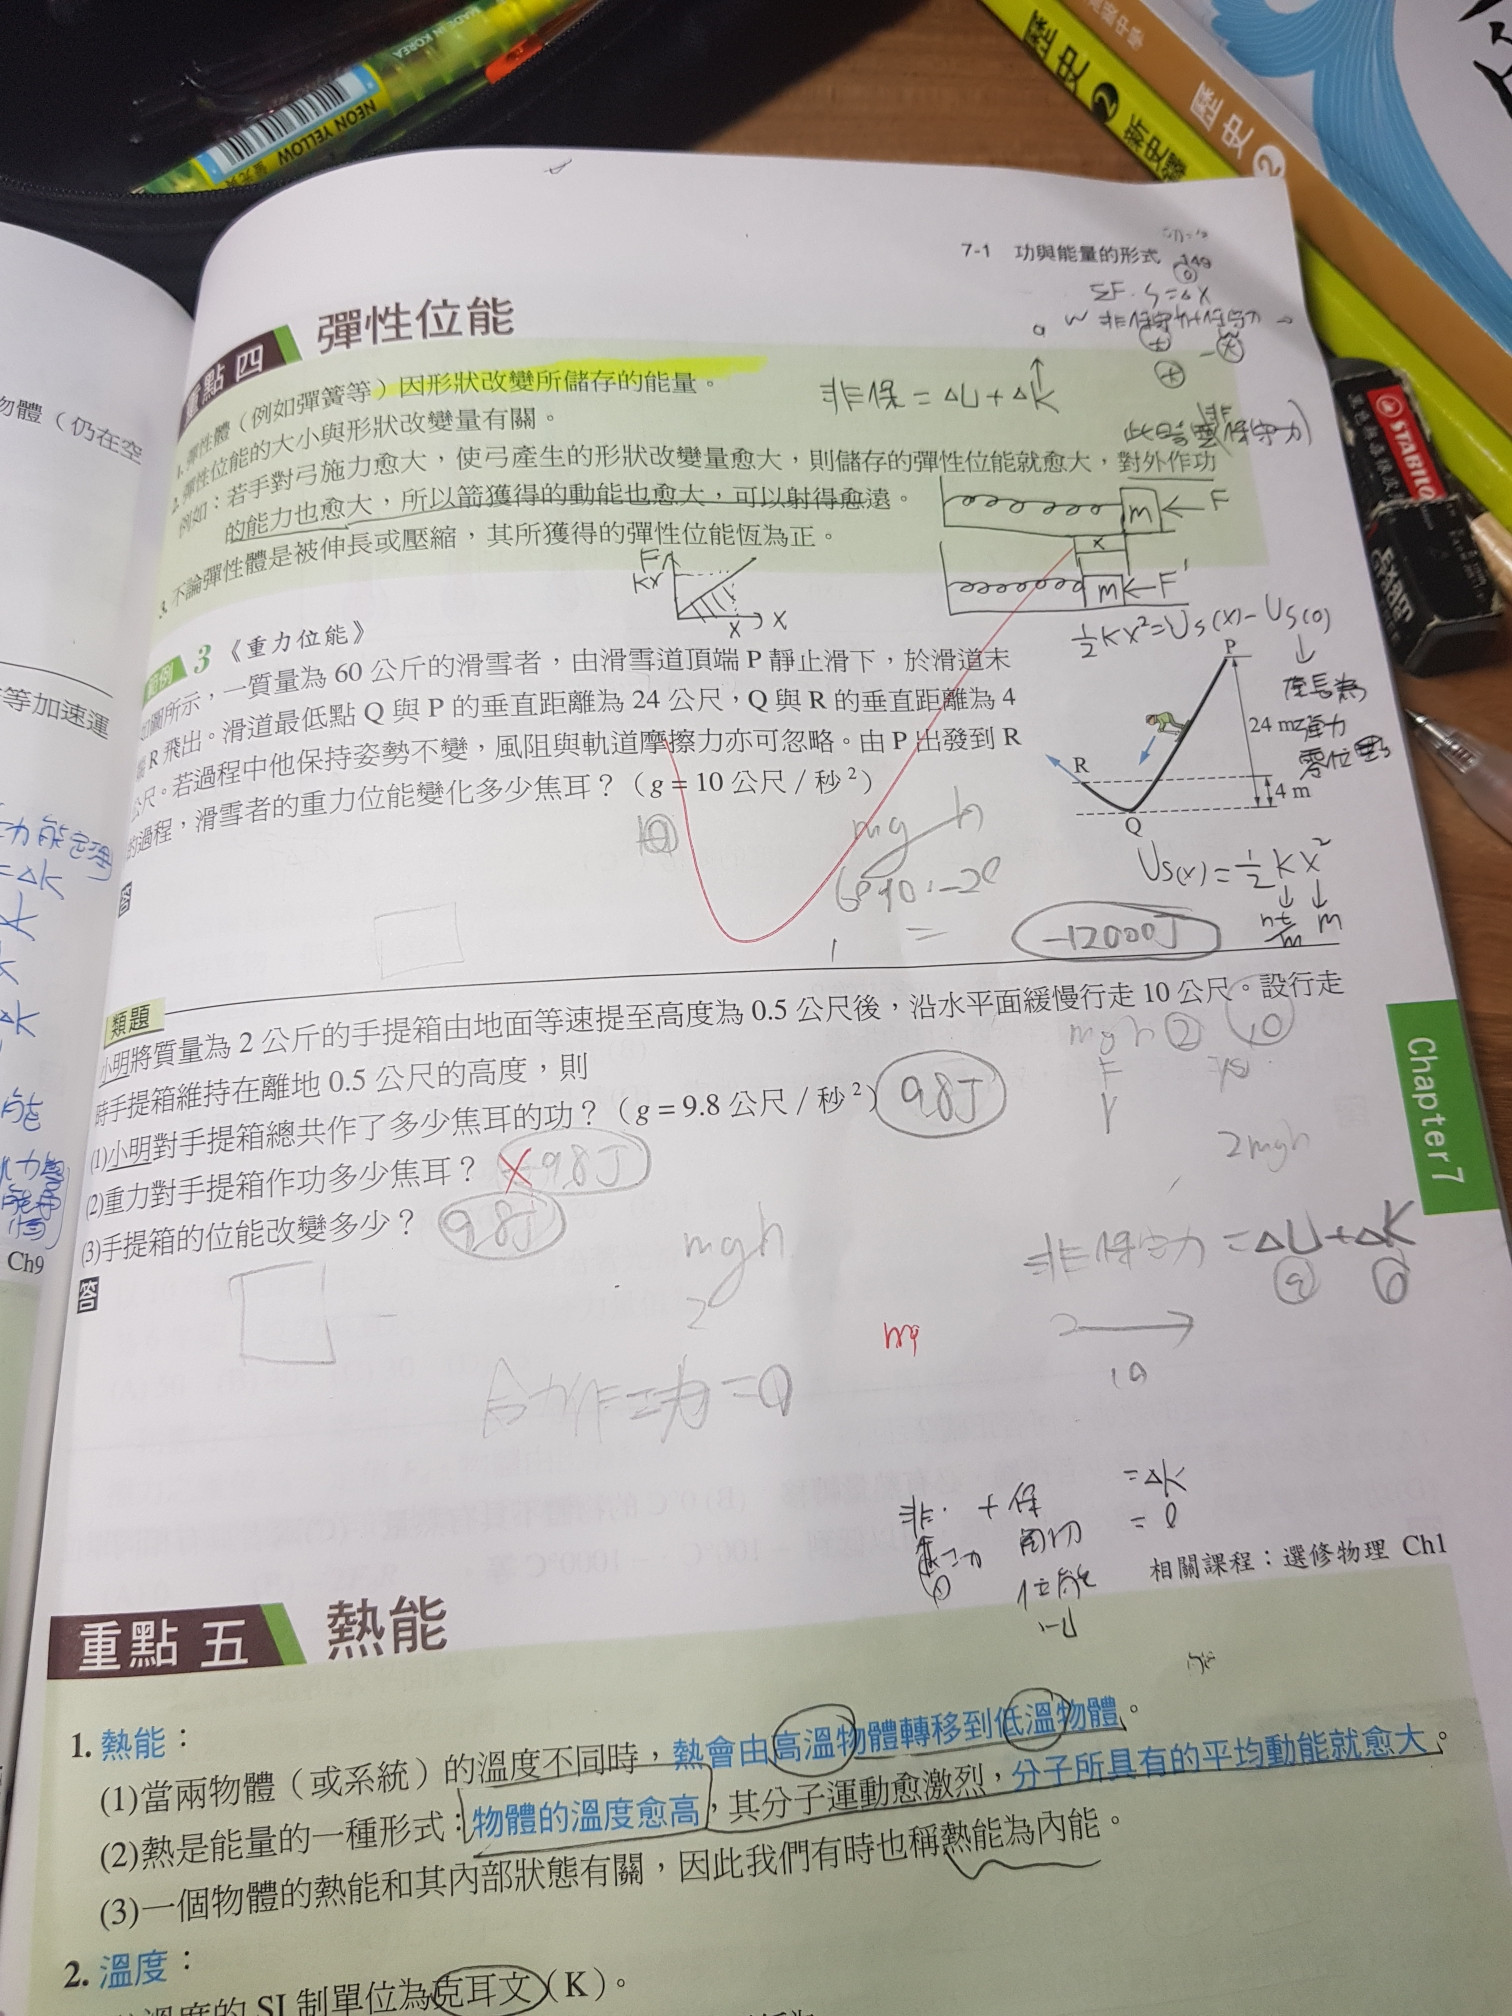 MADE IN KOREA
NEON YELLOW
歷史2
新史鑰
歷史2
STABILO
Exam
7-1 功與能量的形式 149
重點四 彈性位能
1. 彈性體（例如彈簧等）因形狀改變所儲存的能量。
2. 彈性位能的大小與形狀改變量有關。
例如：若手對弓施力愈大，使弓產生的形狀改變量愈大，則儲存的彈性位能就愈大，對外作功
的能力也愈大，所以箭獲得的動能也愈大，可以射得愈遠。
3. 不論彈性體是被伸長或壓縮，其所獲得的彈性位能恆為正。
非保 = ΔU + ΔK
m ← F
x
m ← F'
F
kx
x
x
½kx² = Us(x) - Us(0)
範例 3 《重力位能》
如圖所示，一質量為 60 公斤的滑雪者，由滑雪道頂端 P 靜止滑下，於滑道末
端 R 飛出。滑道最低點 Q 與 P 的垂直距離為 24 公尺，Q 與 R 的垂直距離為 4
公尺。若過程中他保持姿勢不變，風阻與軌道摩擦力亦可忽略。由 P 出發到 R
的過程，滑雪者的重力位能變化多少焦耳？（g = 10 公尺／秒²）
P
24 m
R
4 m
Q
答
mg h
Us(x) = ½kx²
m
-12000J
類題
小明將質量為 2 公斤的手提箱由地面等速提至高度為 0.5 公尺後，沿水平面緩慢行走 10 公尺。設行走
時手提箱維持在離地 0.5 公尺的高度，則
(1)小明對手提箱總共作了多少焦耳的功？（g = 9.8 公尺／秒²） 9.8J
(2)重力對手提箱作功多少焦耳？ -9.8J
(3)手提箱的位能改變多少？ 9.8J
答
mgh
2mgh
mgh
非保守力 = ΔU + ΔK
合力作功 = 0
非 + 保 = ΔK
= 0
位能
相關課程：選修物理 Ch1
Chapter 7
物體（仍在空
等加速運
力能定理
= ΔK
Ch9
重點五 熱能
1. 熱能：
(1)當兩物體（或系統）的溫度不同時，熱會由高溫物體轉移到低溫物體。
(2)熱是能量的一種形式：物體的溫度愈高，其分子運動愈激烈，分子所具有的平均動能就愈大。
(3)一個物體的熱能和其內部狀態有關，因此我們有時也稱熱能為內能。
2. 溫度：
溫度的 SI 制單位為克耳文（K）。